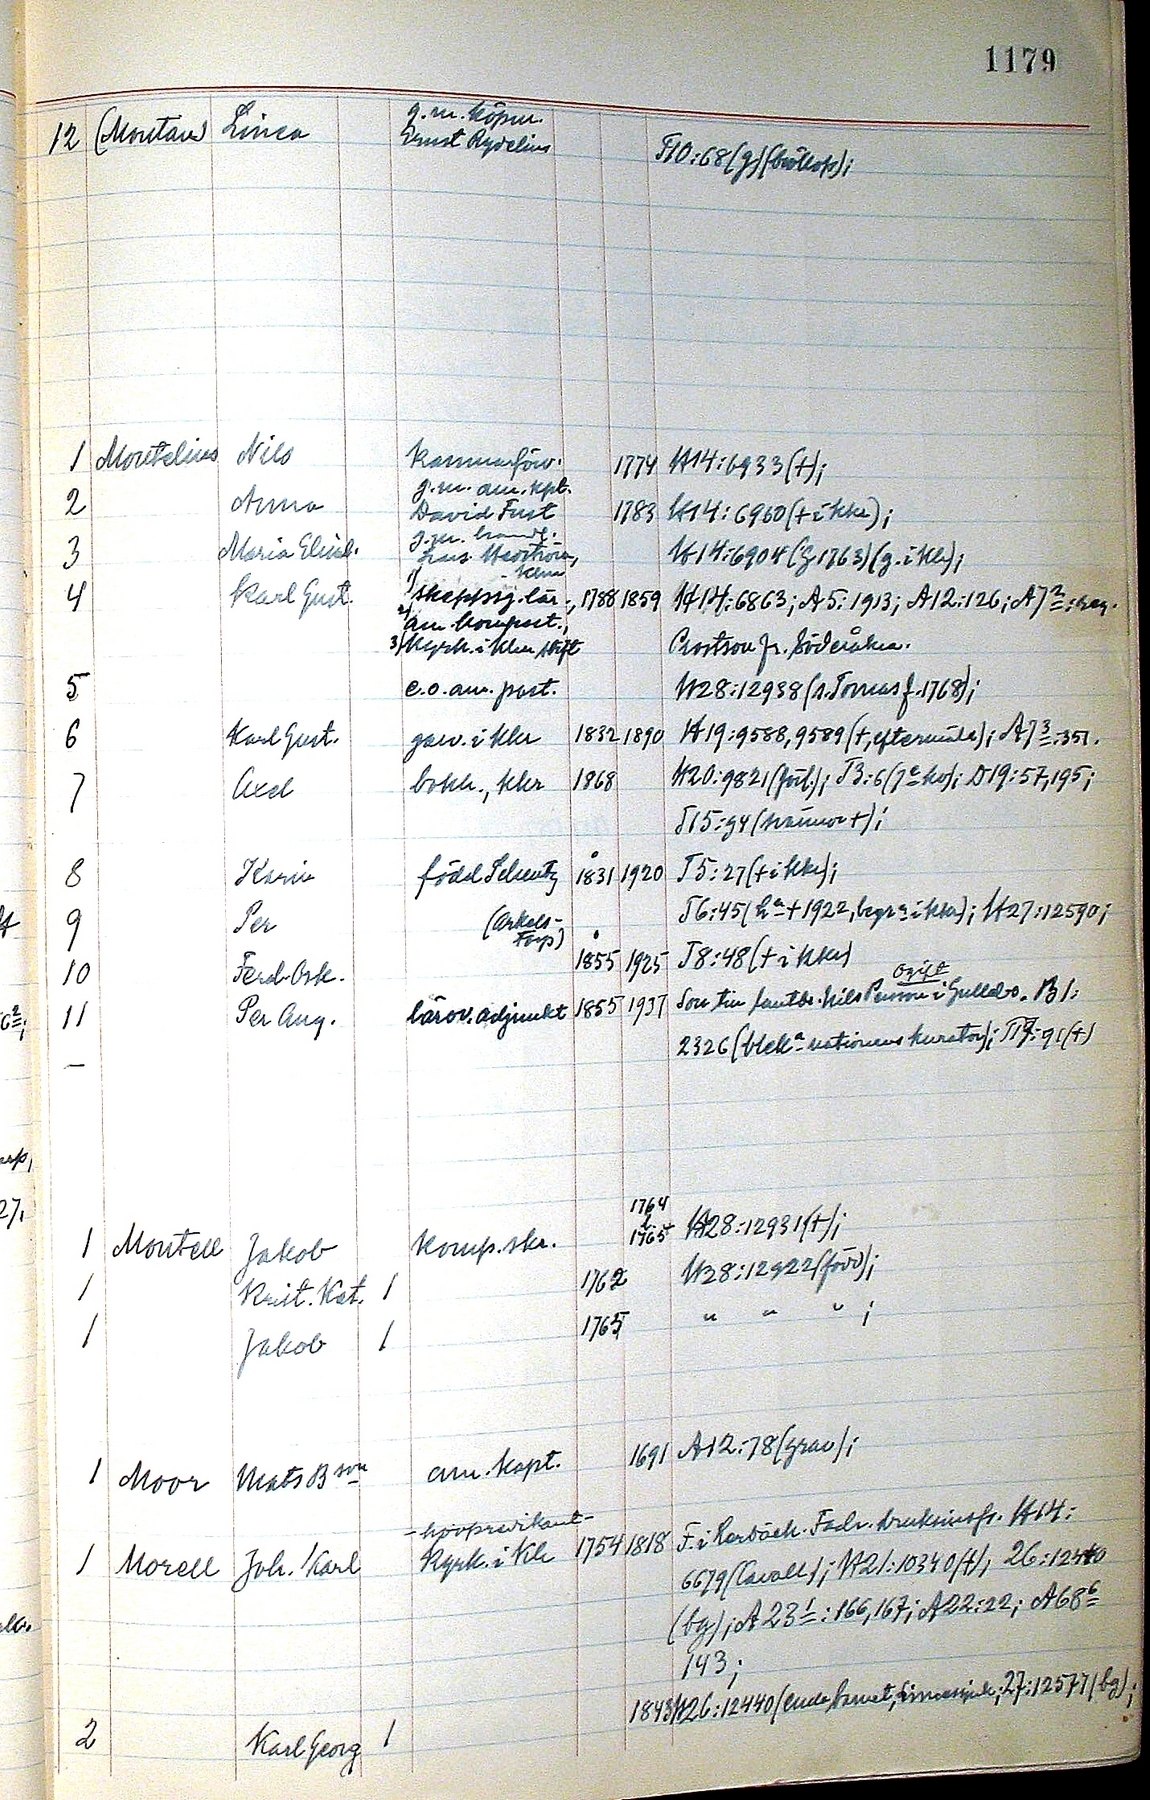 1179
g.m. köpm.
12 (Montan) Linea Ernst Rydelius T10:68(g)(bröllop);
1 Montelius Nils Kammarförv. 1774 H14:6933(+);
g.m. am. kpt.
2 Anna David Fust 1783 H14:6960(+ i kkr);
g.m. handl.
3 Maria Elisab. H14:6904(g 1763)(g. i Klr);
Klm
4 Karl Gust. 1) skeppsg. lär., 1788 1859 H14:6863; A5:1913; A12:126; A7 2:
2) am. kompast.,
3) Kyrk. i Klm stift Prostson fr. Söderåkra.
5 e.o. am. past. H28:12938(s. Tomas f. 1768);
6 Karl Gust. garv. i kkr 1832 1890 H19:9588, 9589(+, eftermäle); A7 3:351.
7 Axel bokh., kkr 1868 H20:9821(förl.); T3:6(7e ko); D19:57,195;
T15:94(svärmor +);
8 Karin född Scheutz 1831 1920 T5:27(+ i kkr);
9 Per (Arkels-
torp) T6:45(h a + 1922, begr a i kkr); H27:12590;
10 Ferd. Osk. 1855 1925 T8:48(+ i kkr)
Ogift
11 Per Aug. lärov. adjunkt 1855 1937 Son till lantbr. Nils Persson i Gulleb. B1:
2326(blek a nationens kurator); T17:91(+)
–
1764
l.
1 Montell Jakob Komp.skr. 1765 H28:12931(+);
1 Krist. Kat. 1 1762 H28:12922(född);
1 Jakob 1 1765 " " " ;
1 Moor Mats B son am. kapt. 1691 A12:78(grav);
- hovpredikant -
1 Morell Joh. Karl Kyrk. i Kk 1754 1818 F. i Torbäck. Fadr. bruksinsp. H14:
6679(Cavalli); H21:10340(+), 26:12440
(bg); A23 1:166,167; A22:22; A68 6
143;
2 Karl Georg 1 1843 H26:12440(enda barnet, sinnessjuk; 27:12577(bg);